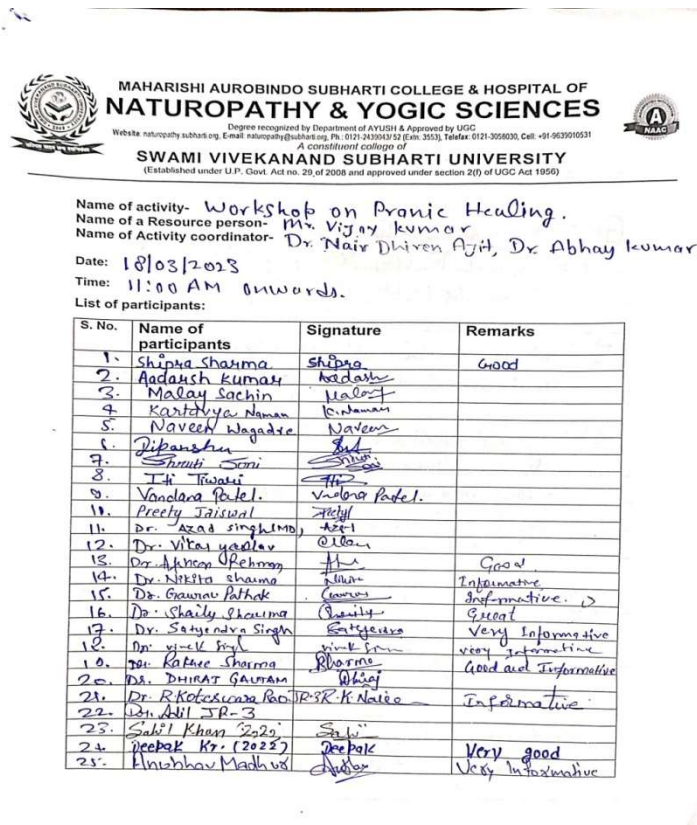 MAHARISHI AUROBINDO SUBHARTI COLLEGE & HOSPITAL OF
NATUROPATHY & YOGIC SCIENCES
Degree recognized by Department of AYUSH & Approved by UGC
Website: naturopathy.subharti.org, E-mail: naturopathy@subharti.org, Ph.: 0121-2439043/ 52 (Extn. 3553), Telefax: 0121-3058030, Cell: +91-9639010531
A constituent college of
SWAMI VIVEKANAND SUBHARTI UNIVERSITY
(Established under U.P. Govt. Act no. 29 of 2008 and approved under section 2(f) of UGC Act 1956)
NAAC
Name of activity- Workshop on Pranic Healing.
Name of a Resource person- Mr. Vijay kumar
Name of Activity coordinator- Dr. Nair Dhiren Ajit, Dr. Abhay kumar
Date: 18/03/2023
Time: 11:00 AM onwards.
List of participants:
S. No. Name of participants Signature Remarks
1. Shipra Sharma Shipra Good
2. Aadarsh Kumar Aadash
3. Malay Sachin
4 Kartavya Naman K.Naman
5. Naveen Wagadre Naveen
6. Dipanshu
7. Shruti Soni Shruti Soni
8. Iti Tiwari
9. Vandana Patel. Vndana Patel.
10. Preety Jaiswal Preety
11. Dr. Azad singh(MD)
12. Dr. Vikas yadav
13. Dr. Rehman Good
14. Dr. Nikita sharma Informative
15. Dr. Gaurav Pathak Gaurav Informative.
16. Dr. Shaily Sharma Shaily Great
17. Dr. Satyendra Singh Satyendra Very Informative
18. Dr. vivek Singh vivek very Informative
19. Dr. Rakhee Sharma RSharma Good and Informative
20. DR. DHIRAJ GAUTAM Dhiraj
21. Dr. R.Koteswara Rao JR-3 Informative
22. Dr. Adil JR-3
23. Sahil Khan '2022'
24. Deepak Kr. (2022) Deepak Very good
25. Anubhav Madhur Very Informative